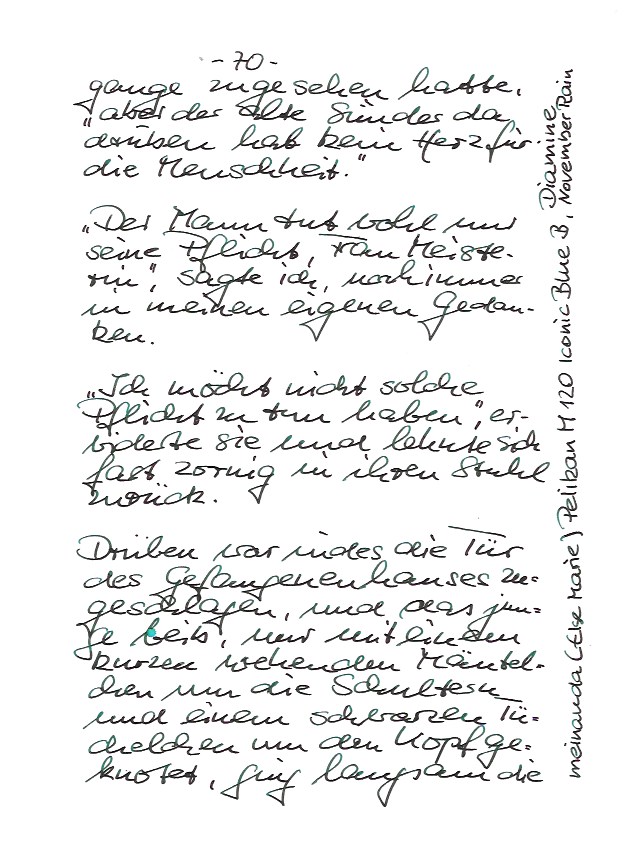 - 70 -
gange zugesehen hatte,
„aber der alte Sünder da
drüben hat kein Herz für
die Menschheit."
„Der Mann tut wohl nur
seine Pflicht, Frau Meiste-
rin", sagte ich, noch immer
in meinen eigenen Gedan-
ken.
„Ich möcht nicht solche
Pflicht zu tun haben", er-
widerte sie und lehnte sich
fast zornig in ihren Stuhl
zurück.
Drüben war indes die Tür
des Gefangenenhauses zu-
geschlagen, und das jun-
ge Weib, nur mit einem
kurzen wehenden Mäntel-
chen um die Schultern
und einem schwarzen Tü-
chelchen um den Kopf ge-
knotet, ging langsam die
meinanda (Elke Marie) Pelikan M 120 Iconic Blue B, Diamine
November Rain